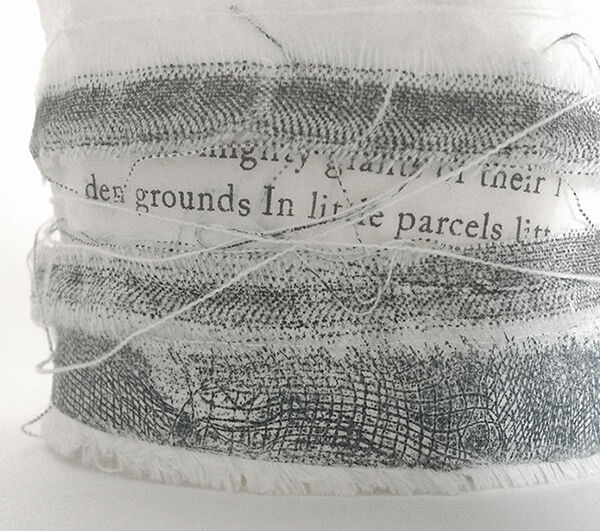 mighty giants of their
den grounds In little parcels litt